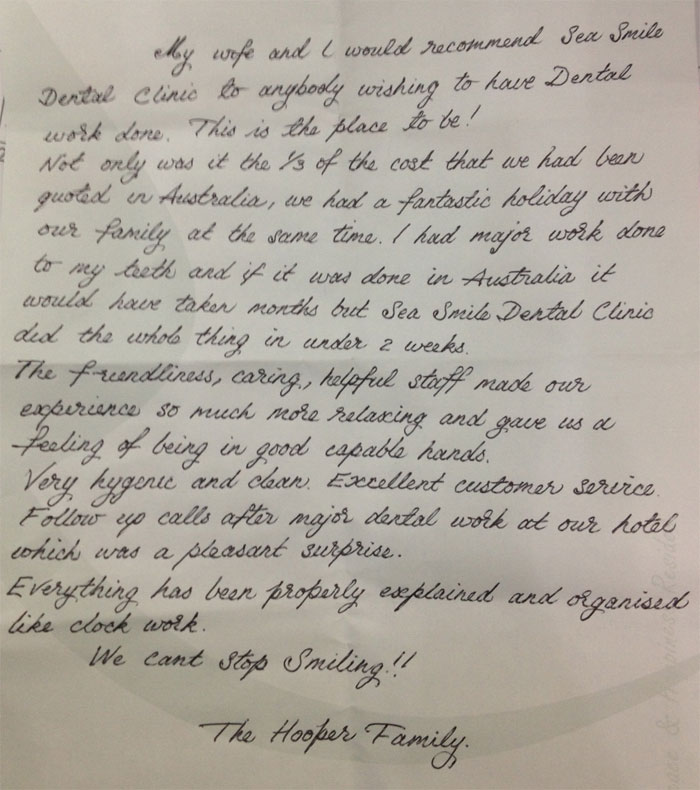 My wife and I would recommend Sea Smile
Dental Clinic to anybody wishing to have Dental
work done. This is the place to be!
Not only was it the 1/3 of the cost that we had been
quoted in Australia, we had a fantastic holiday with
our family at the same time. I had major work done
to my teeth and if it was done in Australia it
would have taken months but Sea Smile Dental Clinic
did the whole thing in under 2 weeks.
The friendliness, caring, helpful staff made our
experience so much more relaxing and gave us a
feeling of being in good capable hands.
Very hygenic and clean. Excellent customer service.
Follow up calls after major dental work at our hotel
which was a pleasant surprise.
Everything has been properly explained and organised
like clock work.
We cant stop Smiling!!
The Hooper Family.